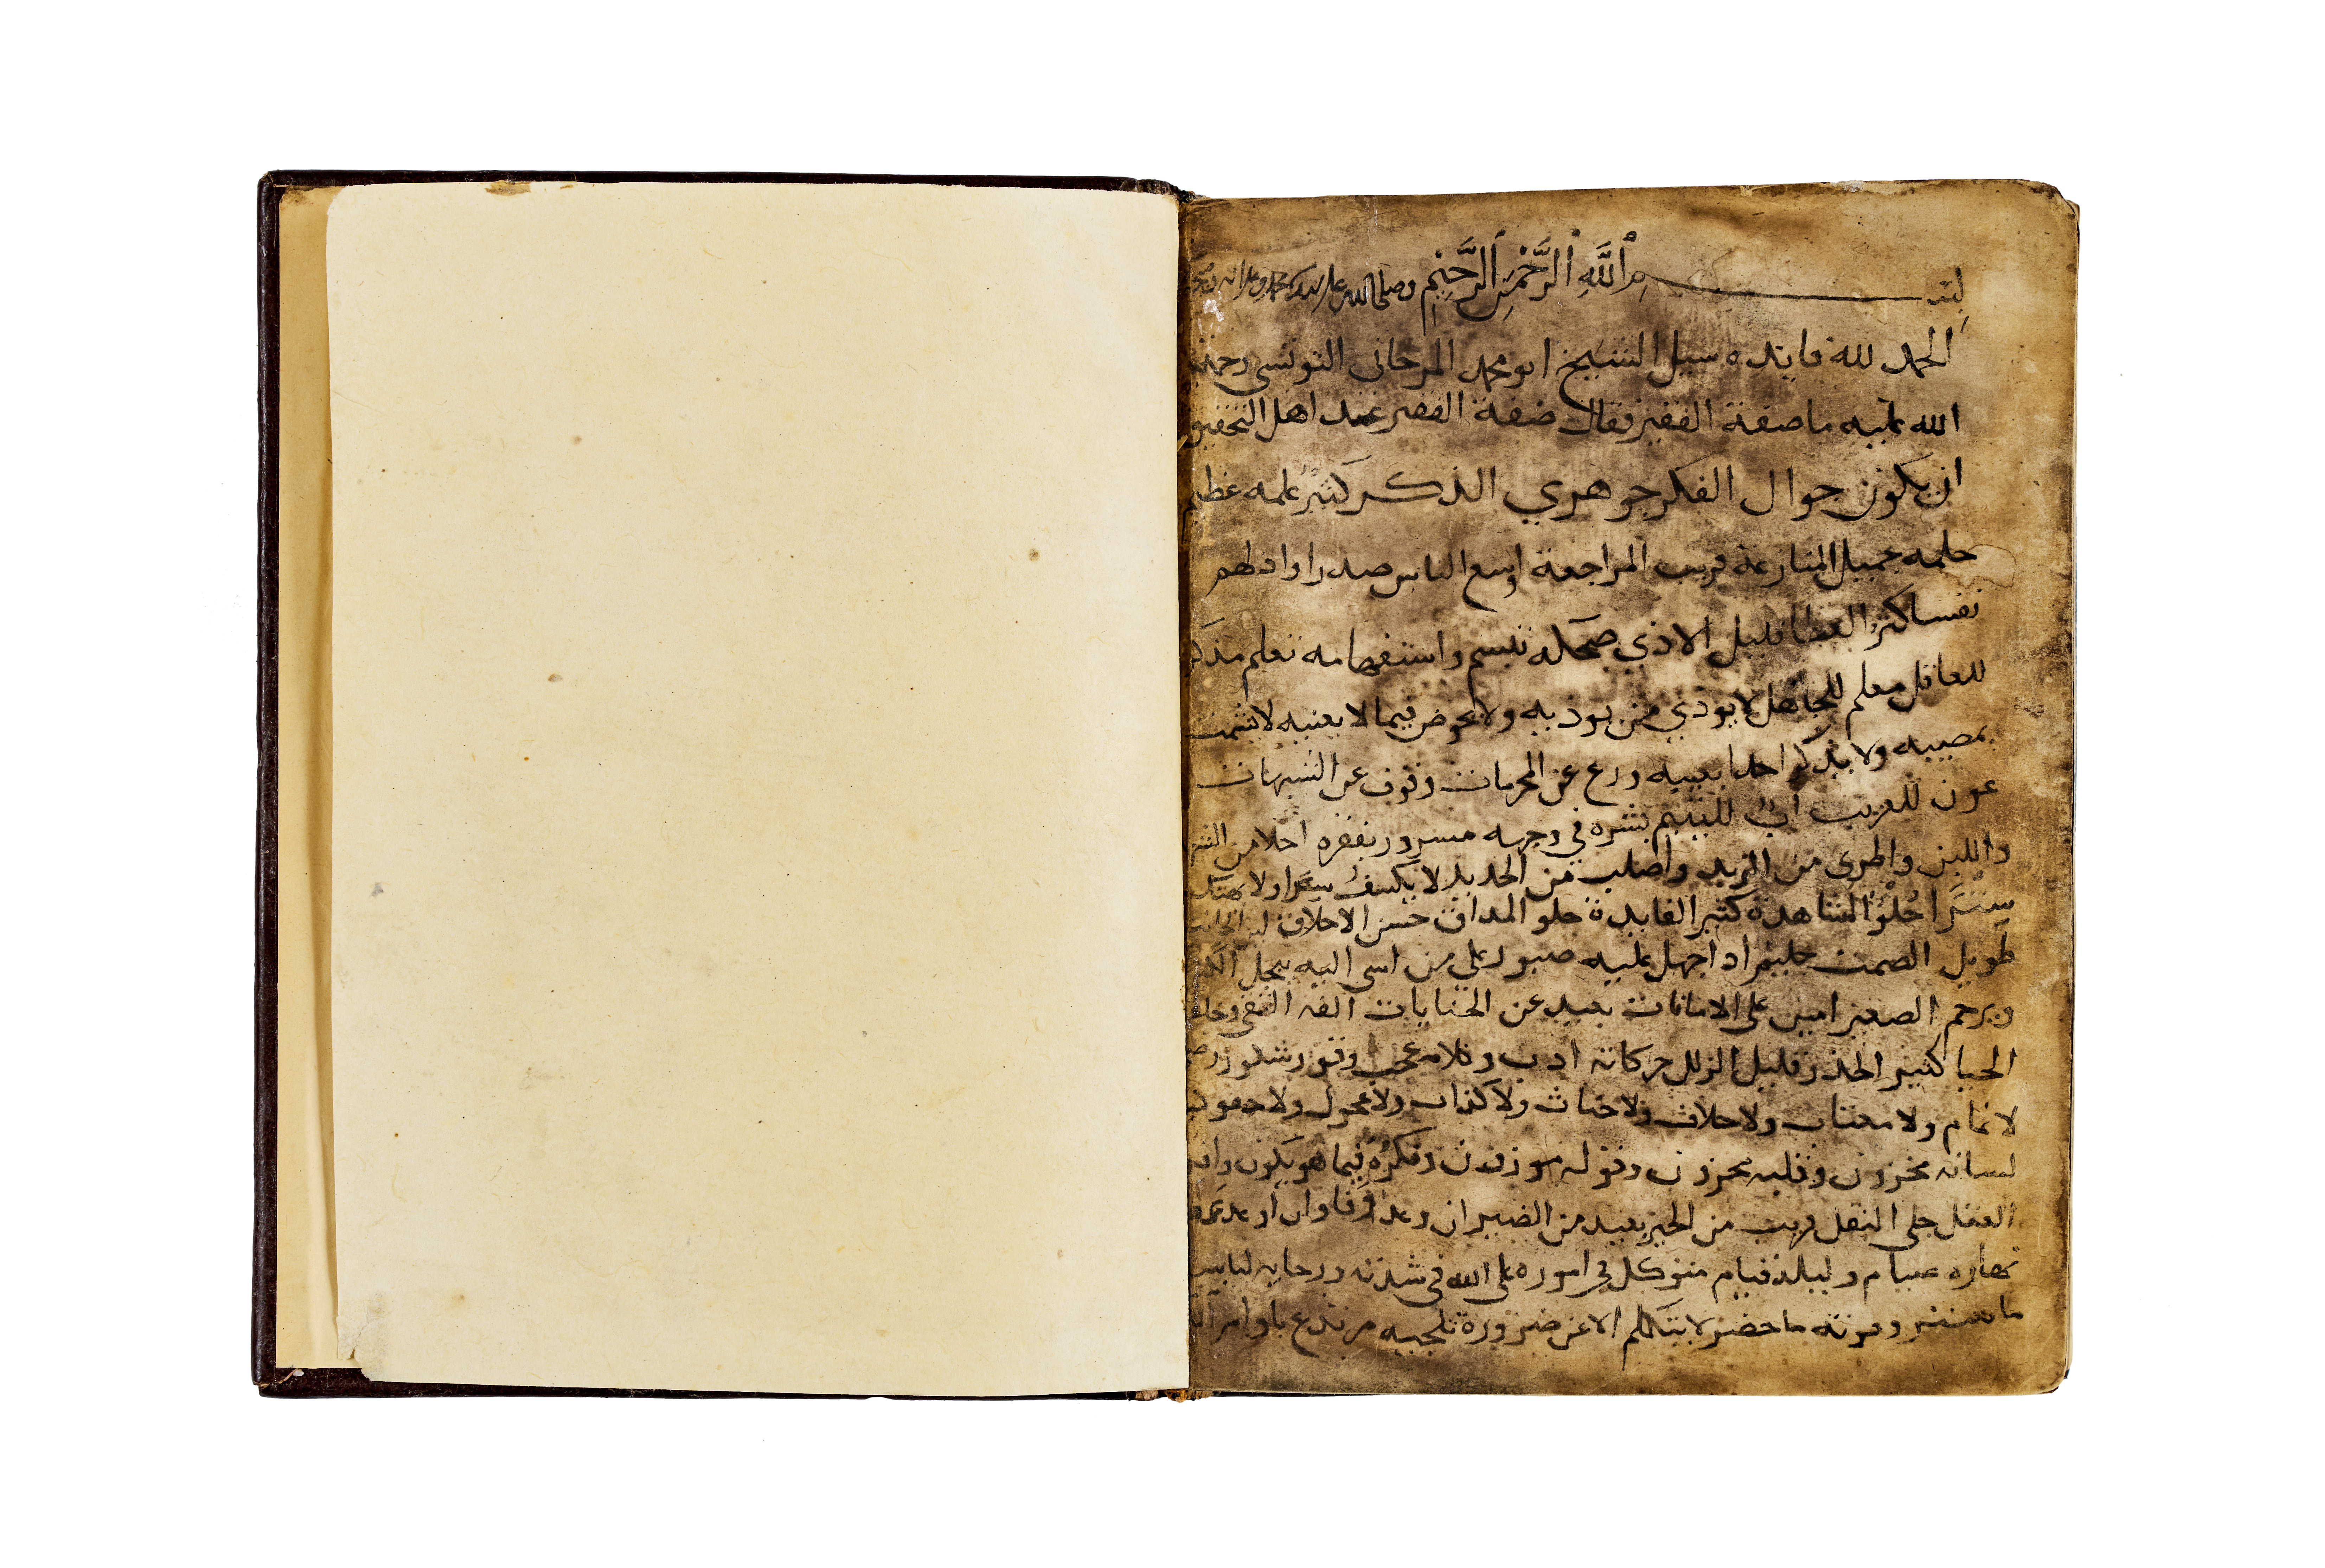 بسم ٱللَّهِ ٱلرَّحْمَنِ ٱلرَّحِيْمِ وصلى الله على سيدنا محمد وعلى اله وصحبه
الحمد لله فايده سيل الشيخ ابو محمد المرجانى التونسى رحمة
الله عليه ما صفة الفقير فقال صفة الفقير عند اهل التحقيق
ان يكون جوال الفكر جوهري الذكر كثير علمه عظيم
حلمه جميل المنازعة قريب المراجعة اوسع الناس صدرا واذلهم
نفسا كثير العطا قليل الاذي ضحكه تبسم واستفهامه تعلم مذكر
للغافل معلم للجاهل لا يوذي من يوذيه ولا يخوض فيما لا يعنيه لا يشمت
بمصيبه ولا يذكر احدا بعيبه ورع عن المحرمات وقوف عن الشبهات
عون للغريب اب لليتيم بشره في وجهه مسرور بفقره احلا من الشهد
واللين واطرى من الزبد واصلب من الحديد لا يكشف سرا ولا يهتك
سترا حُلْوُ المشاهدة كثير الفايدة حلو المداق حسن الاخلاق لين الجانب
طويل الصمت حليم اذا جهل عليه صبور على من اسى اليه يبجل الكبير
ويرحم الصغير امين على الامانات بعيد عن الخنايات الفه التقى وخلقه
الحيا كثير الحذر قليل الزلل حركاته ادب وكلامه عجب وقور شكور
لا نمام ولا مغتاب ولا حلاف ولا خناث ولا كذاب ولا عجول ولا حقود
لسانه مخزون وقلبه محزون وقوله موزون وفكره فيما هو يكون
العقل جلى النقل قريب من الخير بعيد من الضير ان وعد وفا وان اوعد
نهاره صيام وليله قيام متوكل في اموره على الله في شدته ورخايه لباسه
ما ستر وقوته ما حضر لا يتكلم الا عن ضرورة تلجيه مرتدع باوامر الله